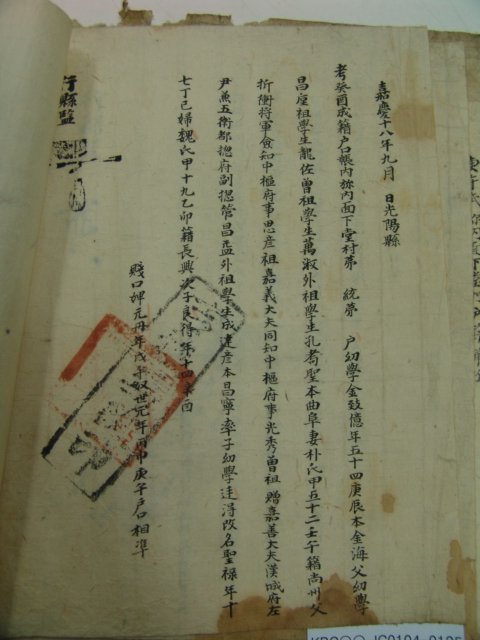 嘉慶十八年九月 日光陽縣
考癸酉成籍户口帳內 內面下堂村第 統第 户幼學金致億年五十四庚辰本金海父幼學
昌 祖學生龍佐曾祖學生萬淑外祖學生孔 聖本曲阜妻朴氏甲五十二壬午籍尚州父
折衝將軍僉知中樞府事思彦祖嘉義大夫同知中樞府事光秀曾祖 贈嘉善大夫漢城府左
尹兼五衛都摠府副摠管昌 外祖學生成達彦本昌寧率子幼學達得改名聖祿年十
七丁巳婦魏氏甲十九乙卯籍長興次子良得年十四 酉
賤口婢元丹年戊午奴世元年 甲庚午户口相凖
行縣監